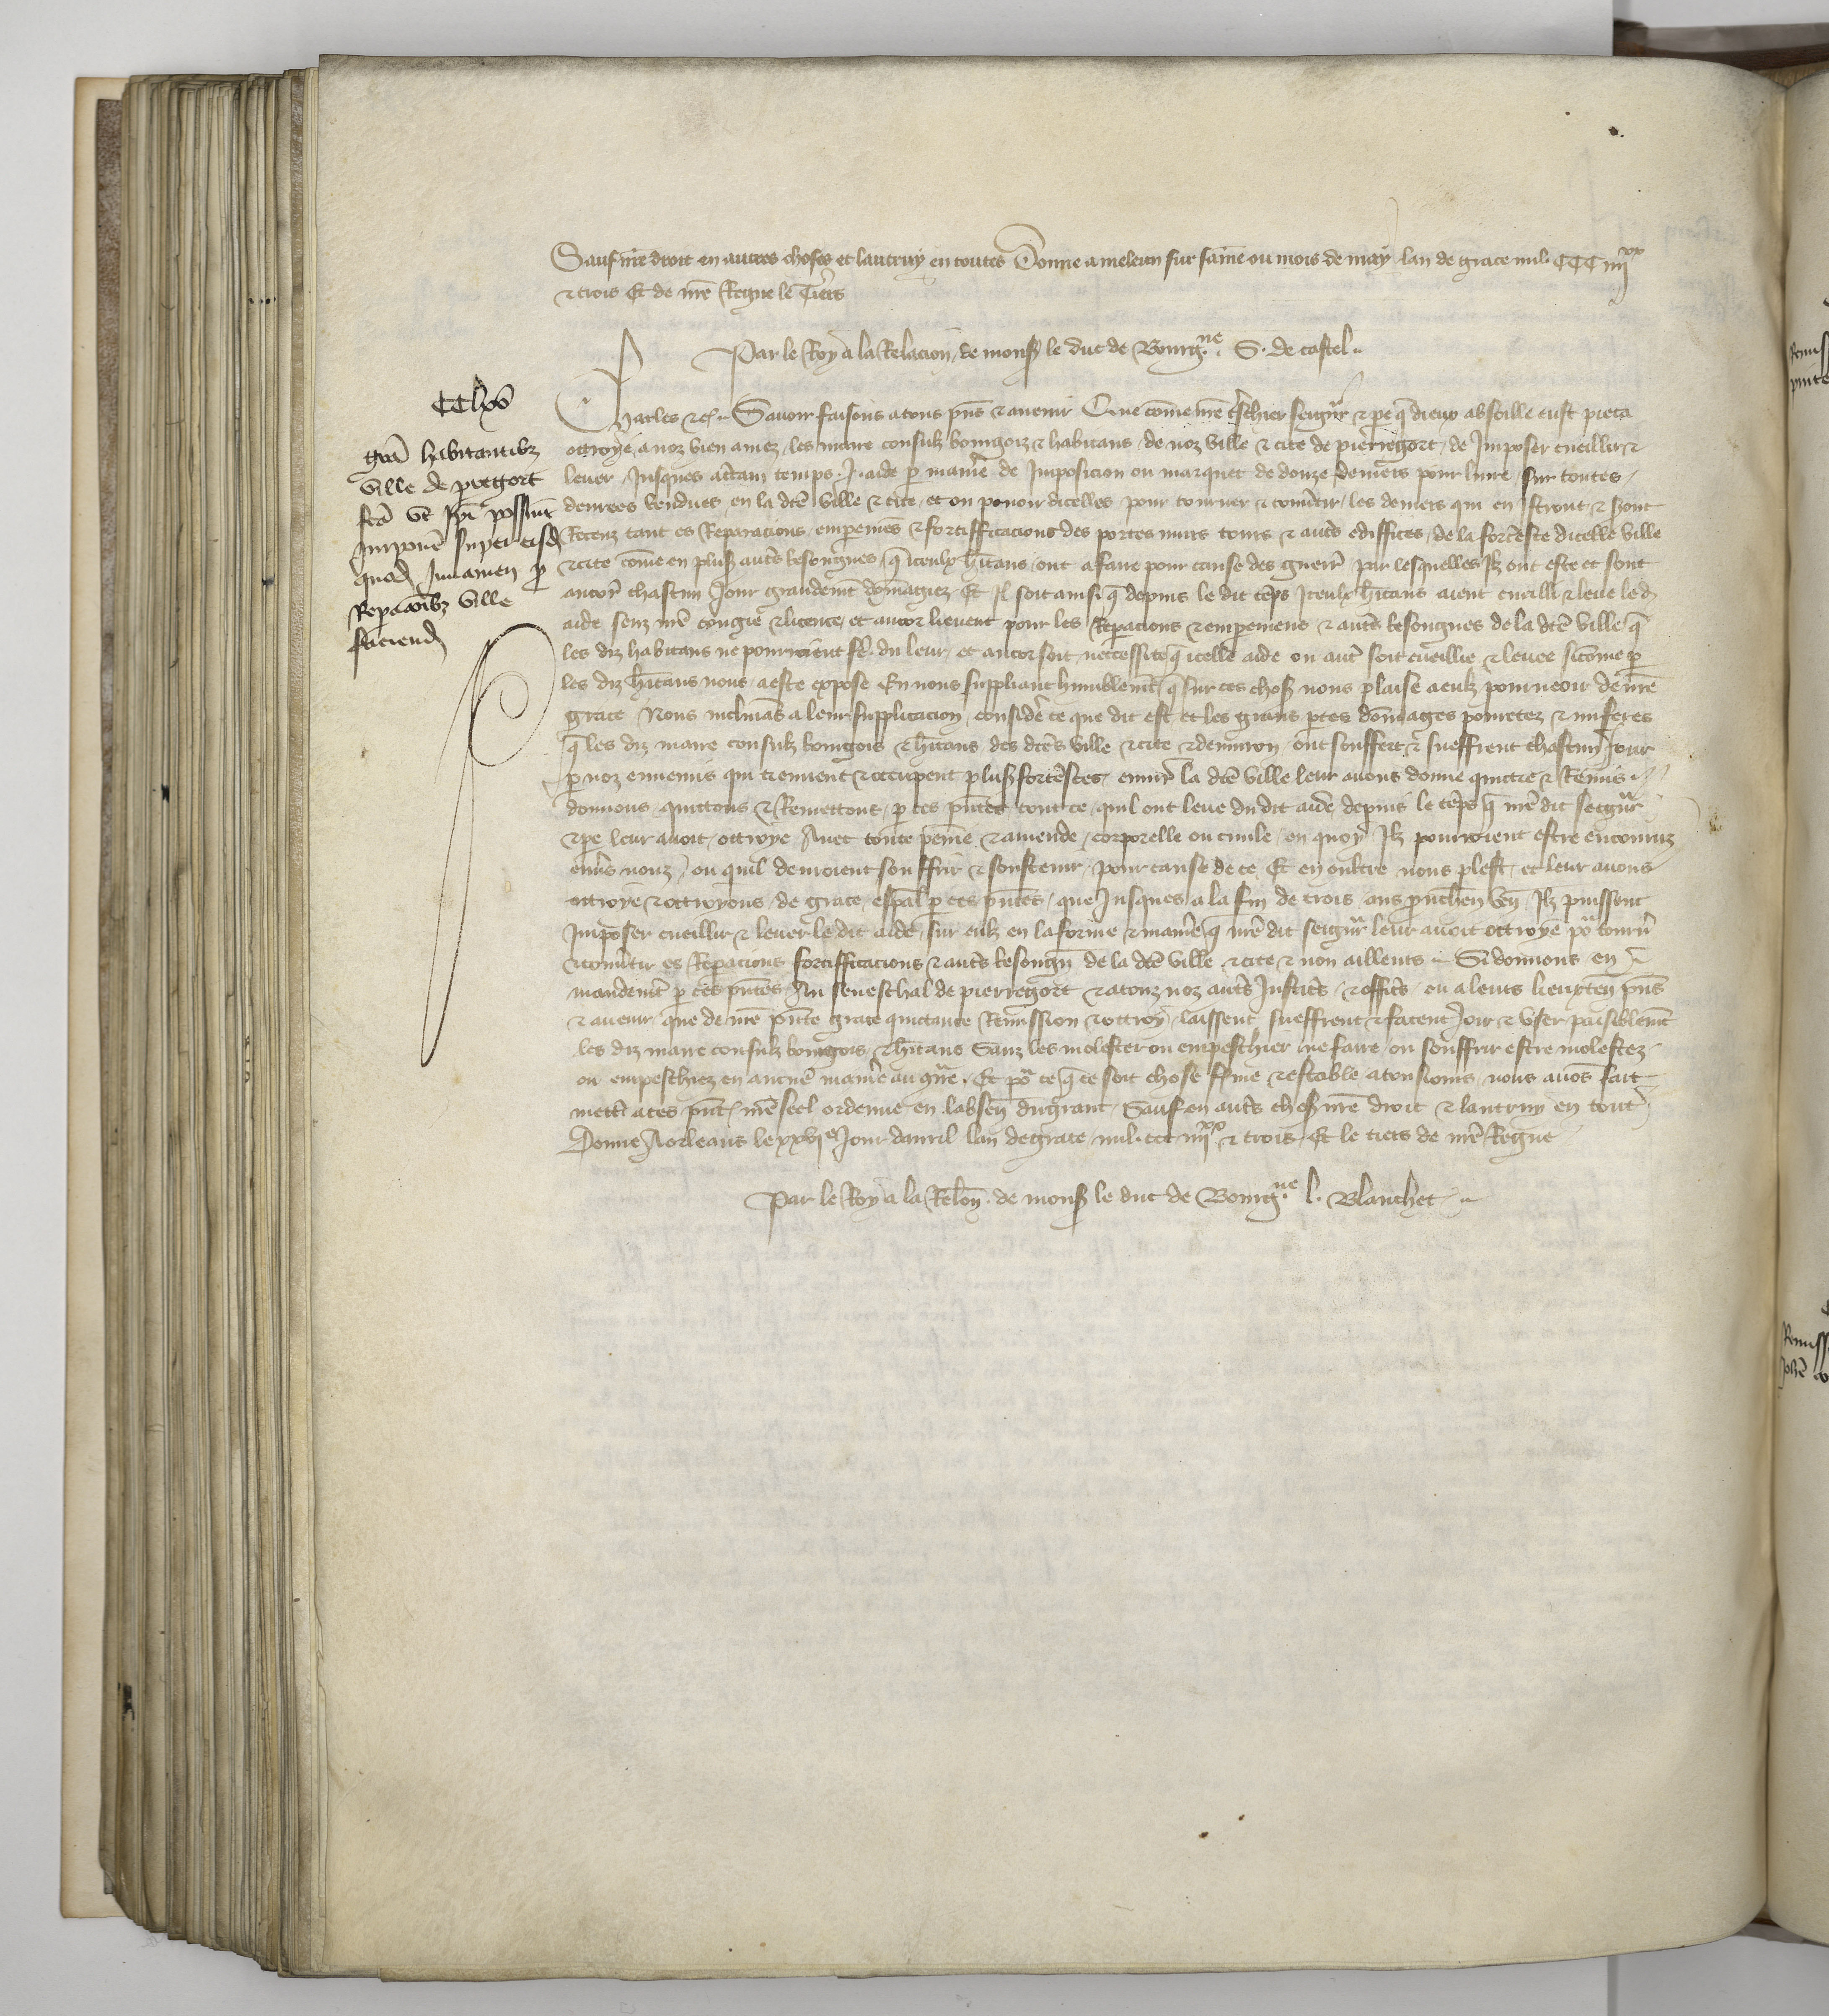 Sauf nr̃e droit en autres choses et lautruy en toutes Donne a meleun sur sainne ou mois de may lan de grace mil CCC iiijxx
& trois Et de nr̃e Regne le Tiers
Par le Roy a la Relacion de mons le duc de Bourgne. S. de castel
CClxv
Charles &c Savoir faisons a tous pn̄s & avenir Que cōme nr̃e t̃schier seigñr & pe q̄ dieux absoille eust pieca
ottroye a noz bien amez les maire consulz bourgois & habitans de noz ville & cite de pierregort de Imposer cueillir &
lever Jusques a c̃tain temps .J. aide p maniẽ de Imposicion ou marquet de douze deniers pour livre sur toutes
denrees vendues en la dc̄e ville & cite et ou povoir dicelles pour tourner & conṽtir les deniers qui en ystront & seront
Receuz tant es Reparacions emparemens & fortifficacions des portes murs tours & aut̃s ediffices de la fort̃esce dicelle ville
& cite cōme en plus aut̃s besongnes q̄ iceulx hītans ont a faire pour cause des gueres par lesquelles Ilz ont este et sont
ancor̃ chascun Jour grandemt̄ dōmagiez Et Il soit ainsi q̄ depuis le dit tēps Iceulx hītans aient cueilli & leve le d
aide senz nr̃e congie & licence et ancor lievent pour les Repacions & empemens & aut̃s besongnes de la dc̄e ville q̄
les diz habitans ne pourroient fe du leur et ancor soit neccessite q̄ icelle aide ou aut̃ soit cueillie & levee sicōme p
les diz hītans nous a este expose En nous suppliant humblemt̄ q̄ sur ces choses nous plaise a eulx pourveoir de nr̃e
grace Nous inclinās a leur supplicacion considẽ ce que dit est et les grans ptes dōmages povretez & miseres
q̄ les diz maire consulz bourgois & hītans des dc̄es ville & cite & denviron ont souffert & sueffrent chascun Jour
p noz ennemis qui tiennent & occupent plus fort̃esces envirõ la dc̄e ville leur avons donne quictie & Remis
donnons quittons & Remettons p ces pn̄tes tout ce quil ont leve du dit aide depuis le tēps q̄ nr̃e dit seigñr
& pe leur avoit ottroye Avec toute peine & amende corporelle ou civile en quoy Ilz pourroient estre encouruz
enṽs nouz ou quil devroient souffrir & soustenir pour cause de ce Et en oultre nous plest et leur avons
ottroye & ottroyons de grace esp̄al p ces pn̄tes que Jusques a la fin de trois ans prouchein ven Ilz puissent
Imposer cueillir & lever le dit aide sur eulx en la forme & maniẽ q̄ nr̃e dit seigñr leur avoit ottroye po tourñ
& conṽtir es Repacions fortifficacions & aut̃s besongn de la dc̄e ville & cite & non ailleurs Si donnons en
mandemt̄ p ces pn̄tes Au seneschal de pierregort & a touz noz aut̃s Justic̃s & offic̃s ou a leurs lieuxten pn̄s
& avenir que de nr̃e pn̄te grace quictance Remission & ottroy laissent sueffrent & facent Joir & user paisiblemt̄
les diz maire consulz bourgois & hītans Sanz les molester ou empeschier ne faire ou souffrir estre molestez
ou empeschiez en aucune maniẽ au gr̃e. Et po ce q̄ ce soit chose ferme & estable a tousiours nous avōs fait
mett̃ a ces pn̄t nr̃e seel ordenne en labsen du grant Sauf en aut̃s chos nr̃e droit & lautruy en tout
Donne A orleans le xxvie Jour davril lan de grace mil ccc iiijxx & trois Et le tiers de nr̃e Regne
Par le Roy a la Relon de mons le duc de Bourgne l. Blanchet
gr̄a habitantibz
ville de petregort
fc̄a ut ipī possint
imponẽ super eisd
quod Juvamen p
Repacōibz ville
faciend